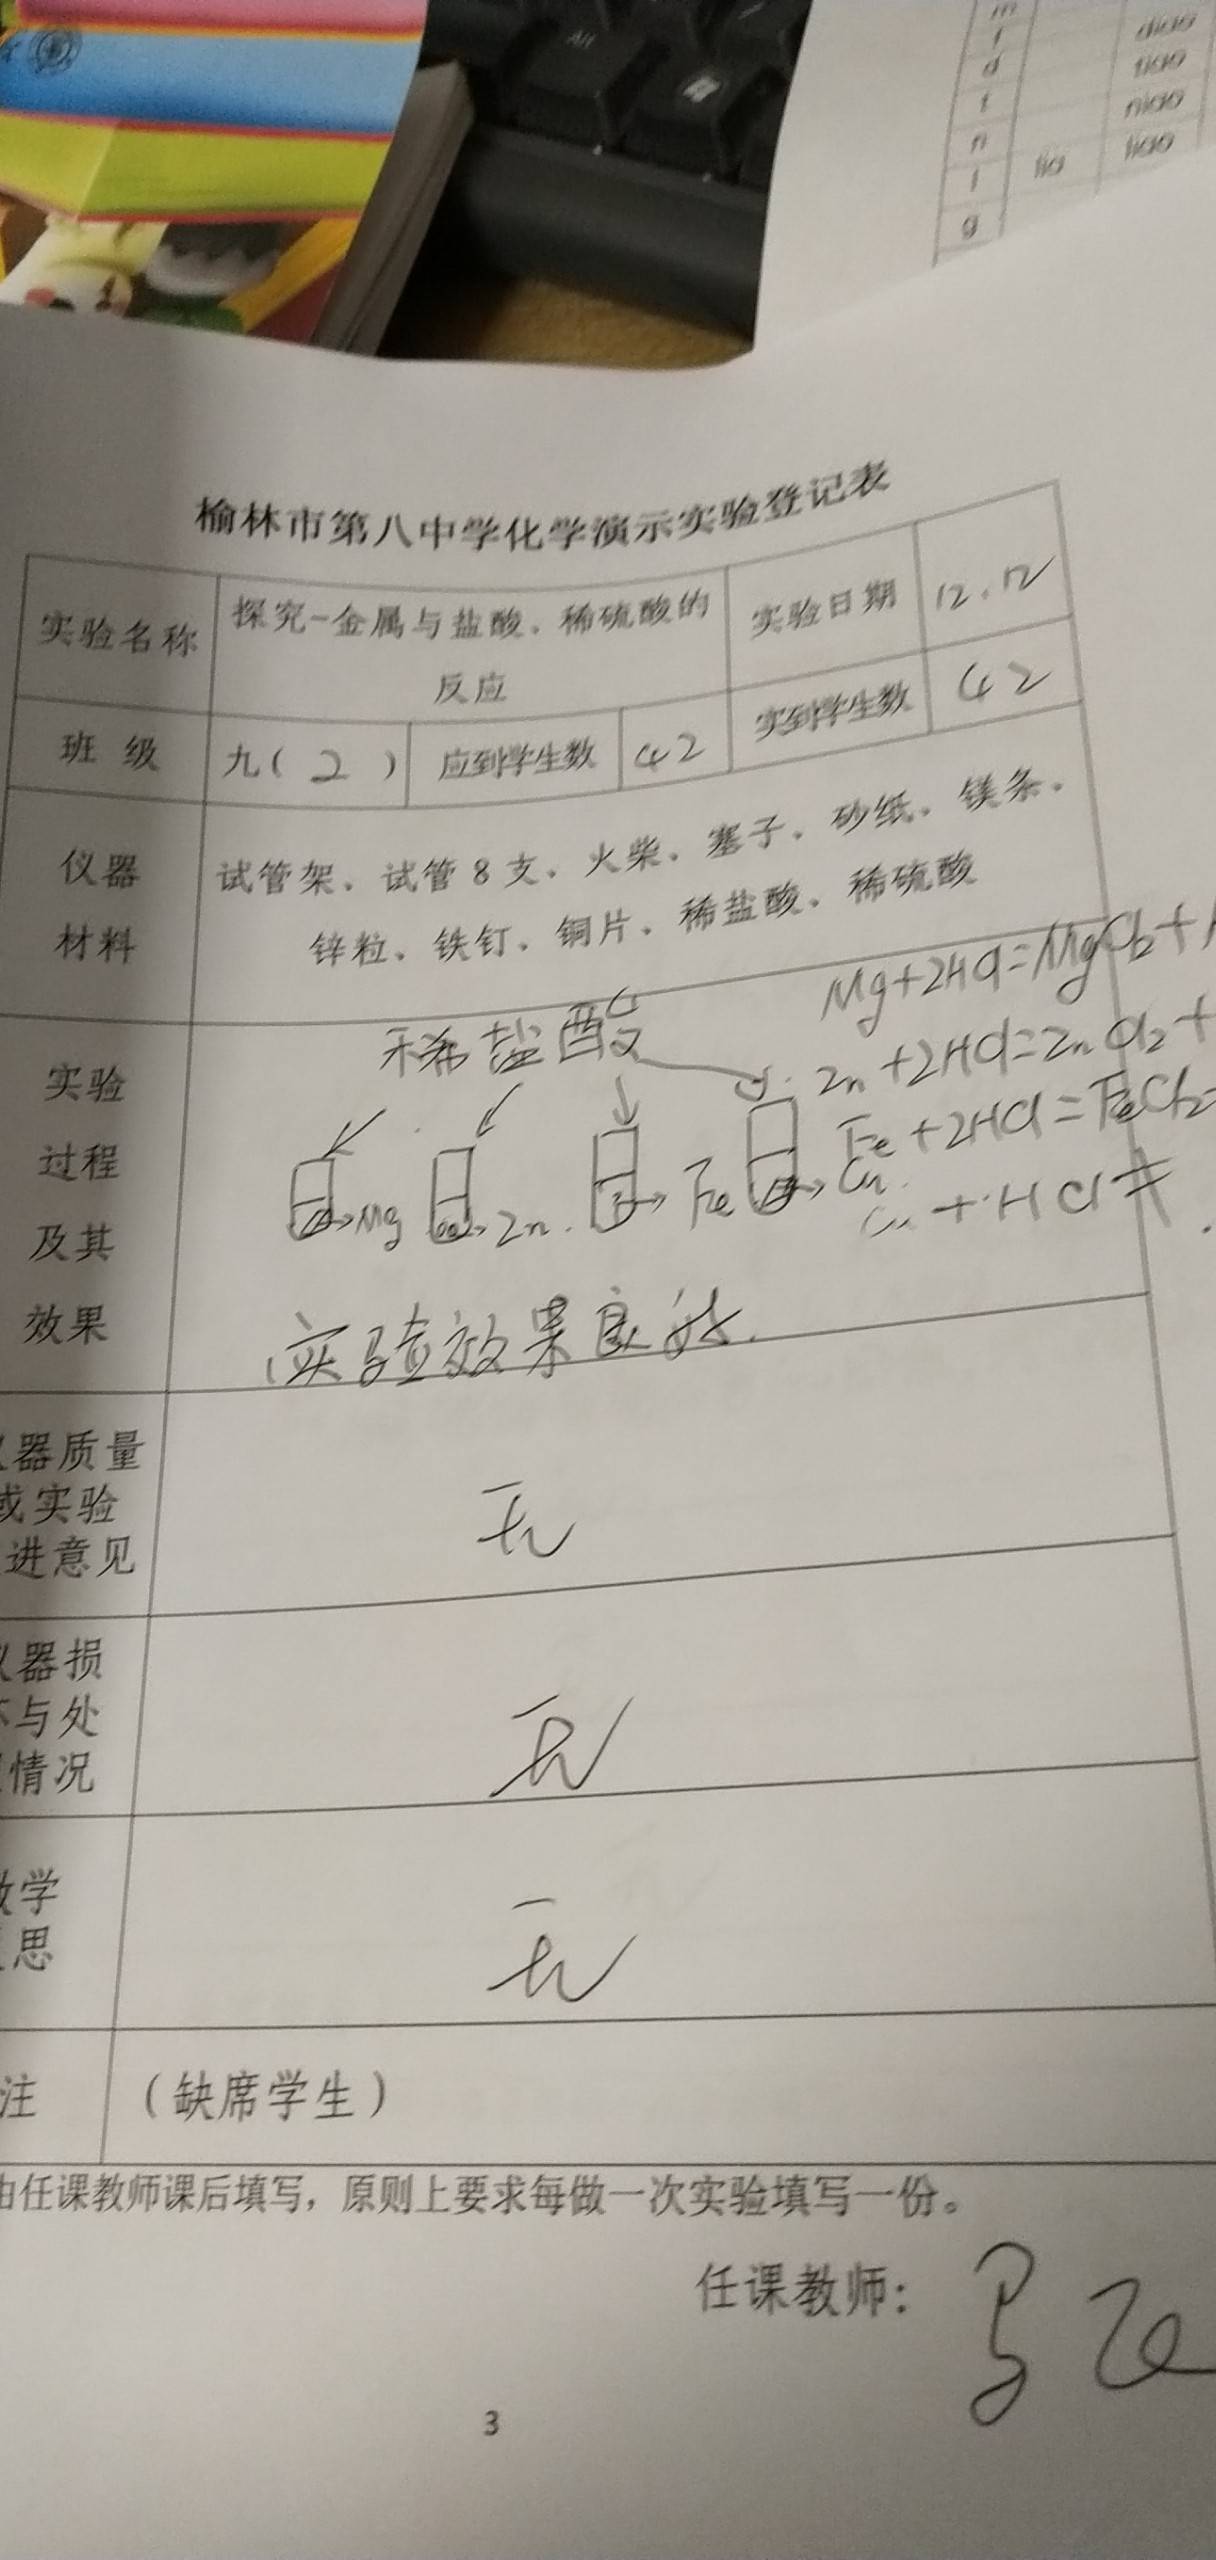 Alt
m
f
diao
d
tiao
t
niao
n
l
lia
liao
g
榆林市第八中学化学演示实验登记表
实验名称
探究-金属与盐酸、稀硫酸的
反应
实验日期
12.12
班 级
九( 2 )
应到学生数
42
实到学生数
42
仪器
材料
试管架、试管8支、火柴、塞子、砂纸、镁条、
锌粒、铁钉、铜片、稀盐酸、稀硫酸
实验
过程
及其
效果
稀盐酸
Mg+2HCl=MgCl2+
Zn+2HCl=ZnCl2+
Fe+2HCl=FeCl2
Cu+HCl≠
Mg
Zn
Fe
Cu
实验效果良好.
器质量
或实验
进意见
无
器损
与处
情况
无
学
思
无
注
(缺席学生)
由任课教师课后填写，原则上要求每做一次实验填写一份。
任课教师:
3